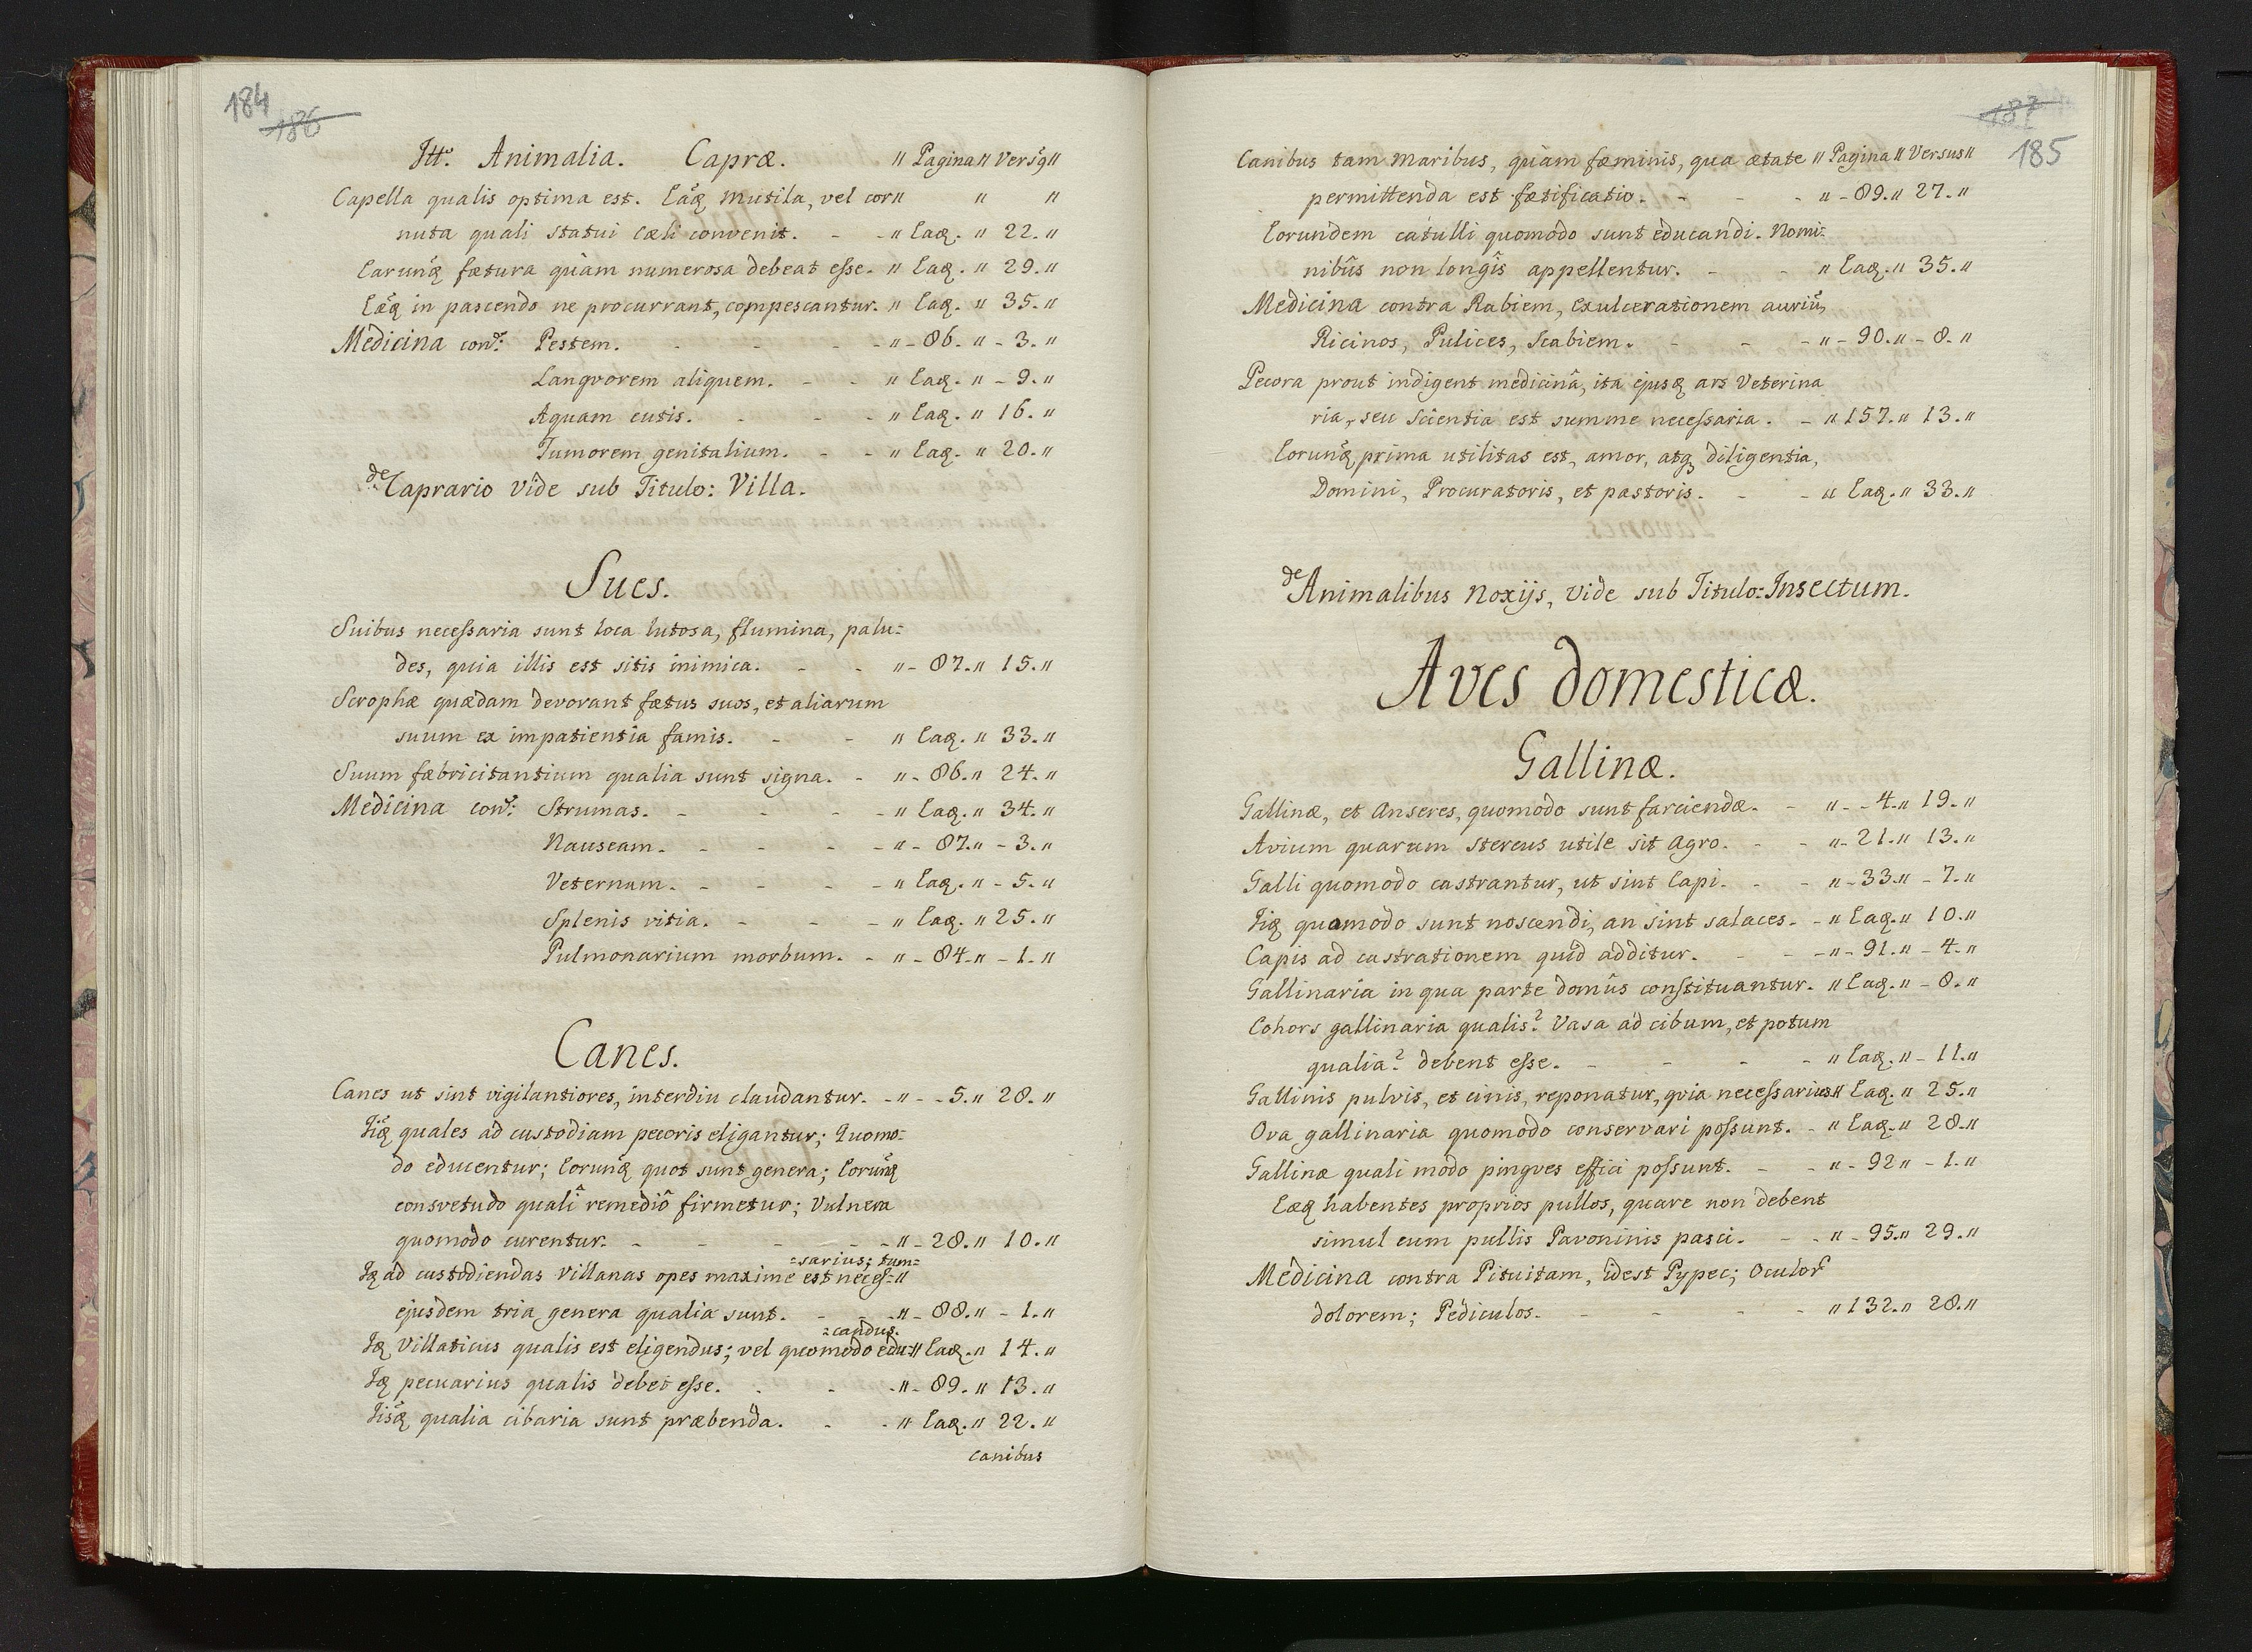 184
186
Itt. Animalia. Capræ. " Pagina " Vers9 "
Capella qualis optima est. Eaq mutila, vel cor " " "
nuta quali statui cæli convenit. - - " Eaq. " 22. "
Earunq fætura quàm numerosa debeat esse. " Eaq. " 29. "
Eæq in pascendo ne procurrant, compescantur. " Eaq. " 35. "
Medicina con: Pestem. - - - - " - 86. " - 3. "
Langvorem aliquem. - - " Eaq. " - 9. "
Aquam cutis. - - - " Eaq. " 16. "
Tumorem genitalium. - - " Eaq. " 20. "
de Caprario vide sub Titulo: Villa.
Sues.
Suibus necessaria sunt loca lutosa, flumina, palu=
des, quia illis est sitis inimica. - - " - 87. " 15. "
Scrophæ quædam devorant fætus suos, et aliarum
suum ex impatientia famis. - - " Eaq. " 33. "
Suum fæbricitantium qualia sunt signa. - " - 86. " 24. "
Medicina con: Strumas. - - - - " Eaq. " 34. "
Nauseam. - - - - " - 87. " - 3. "
Veternum. - - - - " Eaq. " - 5. "
Splenis vitia. - - - " Eaq. " 25. "
Pulmonarium morbum. - " - 84. " - 1. "
Canes.
Canes ut sint vigilantiores, interdiu claudantur. - " - - 5. " 28. "
Iiq quales ad custodiam pecoris eligantur; Quomo=
do educentur; Eorunq quot sunt genera; Eorunq
consvetudo quali remediô firmetur; Vulnera
quomodo curentur. - - - - " - 28. " 10. "
=sarius; tum=
Iq ad custodiendas villanas opes maxime est neces= "
ejusdem tria genera qualia sunt. - - " - 88. " - 1. "
=candus.
Iq Villaticus qualis est eligendus; vel quomodo edu= " Eaq. " 14. "
Iq pecuarius qualis debet esse. - - - " - 89. " 13. "
Iisq qualia cibaria sunt præbenda. - - " Eaq. " 22. "
canibus
187
185
Canibus tam maribus, quàm fæminis, qua ætate " Pagina " Versus "
permittenda est fætificatio. - - - " - 89. " 27. "
Eorundem catulli quomodo sunt educandi. Nomi=
nibûs non longîs appellentur. - - " Eaq. " 35. "
Medicina contra Rabiem, exulcerationem auriũ,
Ricinos, Pulices, Scabiem. - - - " - 90. " - 8. "
Pecora prout indigent medicinâ, ita ejusq ars Veterina
ria, seu Scientia est summe necessaria. - " 157. " 13. "
Eorunq prima utilitas est, amor, atq diligentia,
Domini, Procuratoris, et pastoris. - - " Eaq. " 33. "
de Animalibus Noxijs, vide sub Titulo: Insectum.
Aves domesticæ.
Gallinæ.
Gallinæ, et Anseres, quomodo sunt farciendæ. - " - - 4. " 19. "
Avium quarum stercus utile sit agro. - - " - 21. " 13. "
Galli quomodo castrantur, ut sint Capi. - - " - 33. " - 7. "
Iiq quomodo sunt noscendi, an sint salaces. - " Eaq. " 10. "
Capis ad castrationem quid additur. - - - " - 91. " - 4. "
Gallinaria in qua parte domûs constituantur. " Eaq. " - 8. "
Cohors gallinaria qualis? Vasa ad cibum, et potum
qualia? debent esse. - - - - " Eaq. " - 11. "
Gallinis pulvis, et cinis, reponatur, qvia necessarius " Eaq. " 25. "
Ova gallinaria quomodo conservari possunt. - " Eaq. " 28. "
Gallinæ quali modo pingves effici possunt. - - " - 92 " - 1. "
Eæq habentes proprios pullos, quare non debent
simul cum pullis Pavoninis pasci. - - " - 95. " 29. "
Medicina contra Pituitam, idest Pypec; Oculor
dolorem; Pediculos. - - - - " 132. " 28. "